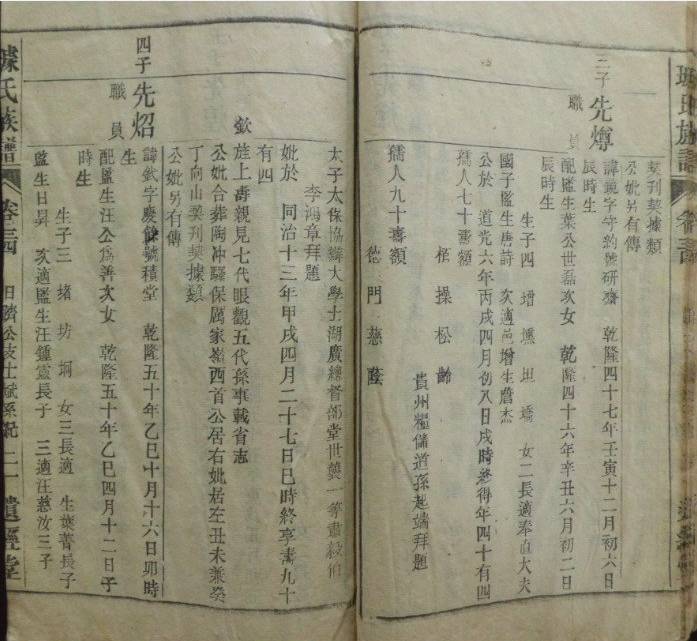 契刊契據類
公妣另有傳
三子
先燇
職員
諱鏡字守約號研齋 乾隆四十七年壬寅十二月初六日
辰時生
配監生葉公世磊次女 乾隆四十六年辛丑六月初二日
辰時生
生子四 增 墲 坦 壔 女二長適奉直大夫
國子監生唐詩 次適邑增生詹杰
公於 道光六年丙戌四月初八日戌時終得年四十有四
孺人七十壽額
松操松齡
貴州糧儲道孫起端拜題
孺人九十壽額
德門慈蔭
太子太保協辦大學士湖廣總督部堂世襲一等肅毅伯
李鴻章拜題
妣於 同治十三年甲戌四月二十七日巳時終享壽九十
有四
欽旌上壽親見七代眼觀五代孫事載省志
公妣合葬陶冲驛保厲家嶺西首公居右妣居左丑未兼癸
丁向山契刊契據類
公妣另有傳
四子
先炤
職員
諱釴字慶餘號積堂 乾隆五十年乙巳十月十六日卯時
生
配監生汪公爲善次女 乾隆五十年乙巳四月十二日子
時生
生子三 堵 坊 坰 女三長適 生葉菁長子
監生日昇 次適監生汪鍾靈長子 三適汪慈汝三子
氏族譜
卷三四
日躋公支士斌系紀
二一
遺經堂